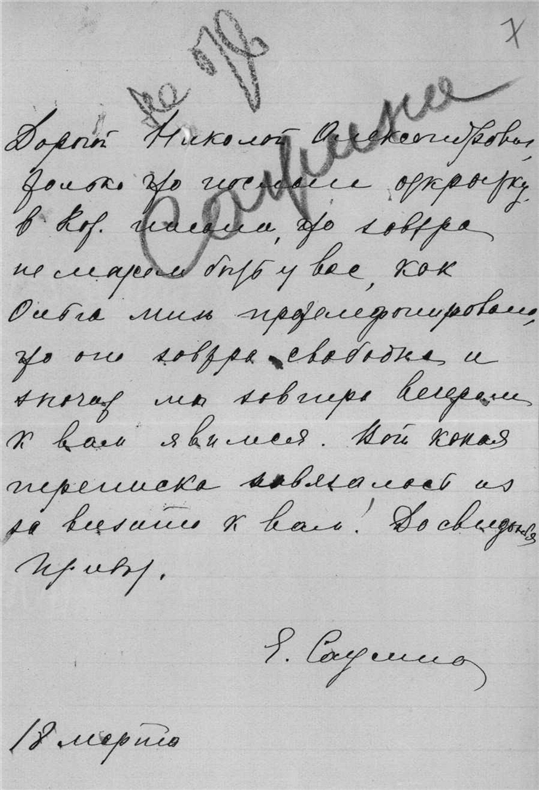 7
на
Сацина
Дорогой Николай Александрович,
только что послала открытку,
в кот. писала, что завтра
не можем быть у вас, как
Ольга мне протелефонировала,
что она завтра свободна и
значит мы завтра вечером
к вам явимся. Вот какая
переписка завязалась из
за визита к вам! До свиданья
Привет.
Е. Сацина
18 марта